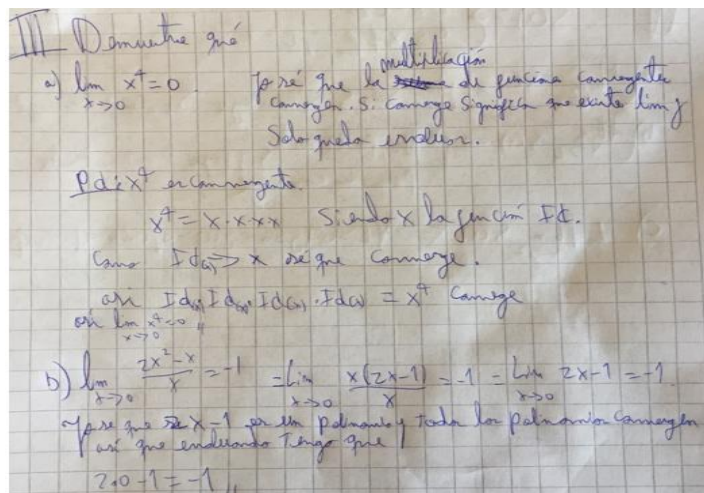 III Demuestre qué
a) lim x⁴ = 0. yo sé que la multiplicación de funciones convergentes
x→0 convergen. Si converge significa que existe lim y
Solo queda evaluar.
Pd: x⁴ es convergente.
x⁴ = x·x·x·x Siendo x la función Id.
Como Id(x) → x sé que converge.
así Id(x)·Id(x)·Id(x)·Id(x) = x⁴ converge
así lim x⁴ = 0 ,,
x→0
b) lim 2x²-x / x = -1 = Lim x(2x-1) / x = -1 = Lim 2x-1 = -1.
x→0 x→0 x→0
yo se que 2x-1 es un polinomio y todos los polinomios convergen
así que evaluando tengo que
2·0-1 = -1 ,,